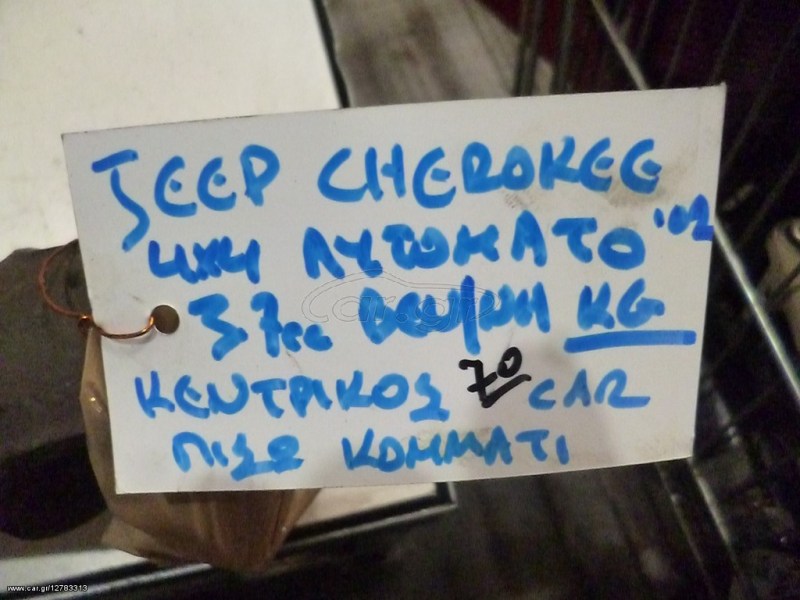 JEEP CHEROKEE
4X4 ΑΥΤΟΜΑΤΟ '02
3.7cc ΒΕΝ/ΝΗ KG
ΚΕΝΤΡΙΚΟΣ 70 CAR
ΠΙΣΩ ΚΟΜΜΑΤΙ
car.gr
www.car.gr/12783313